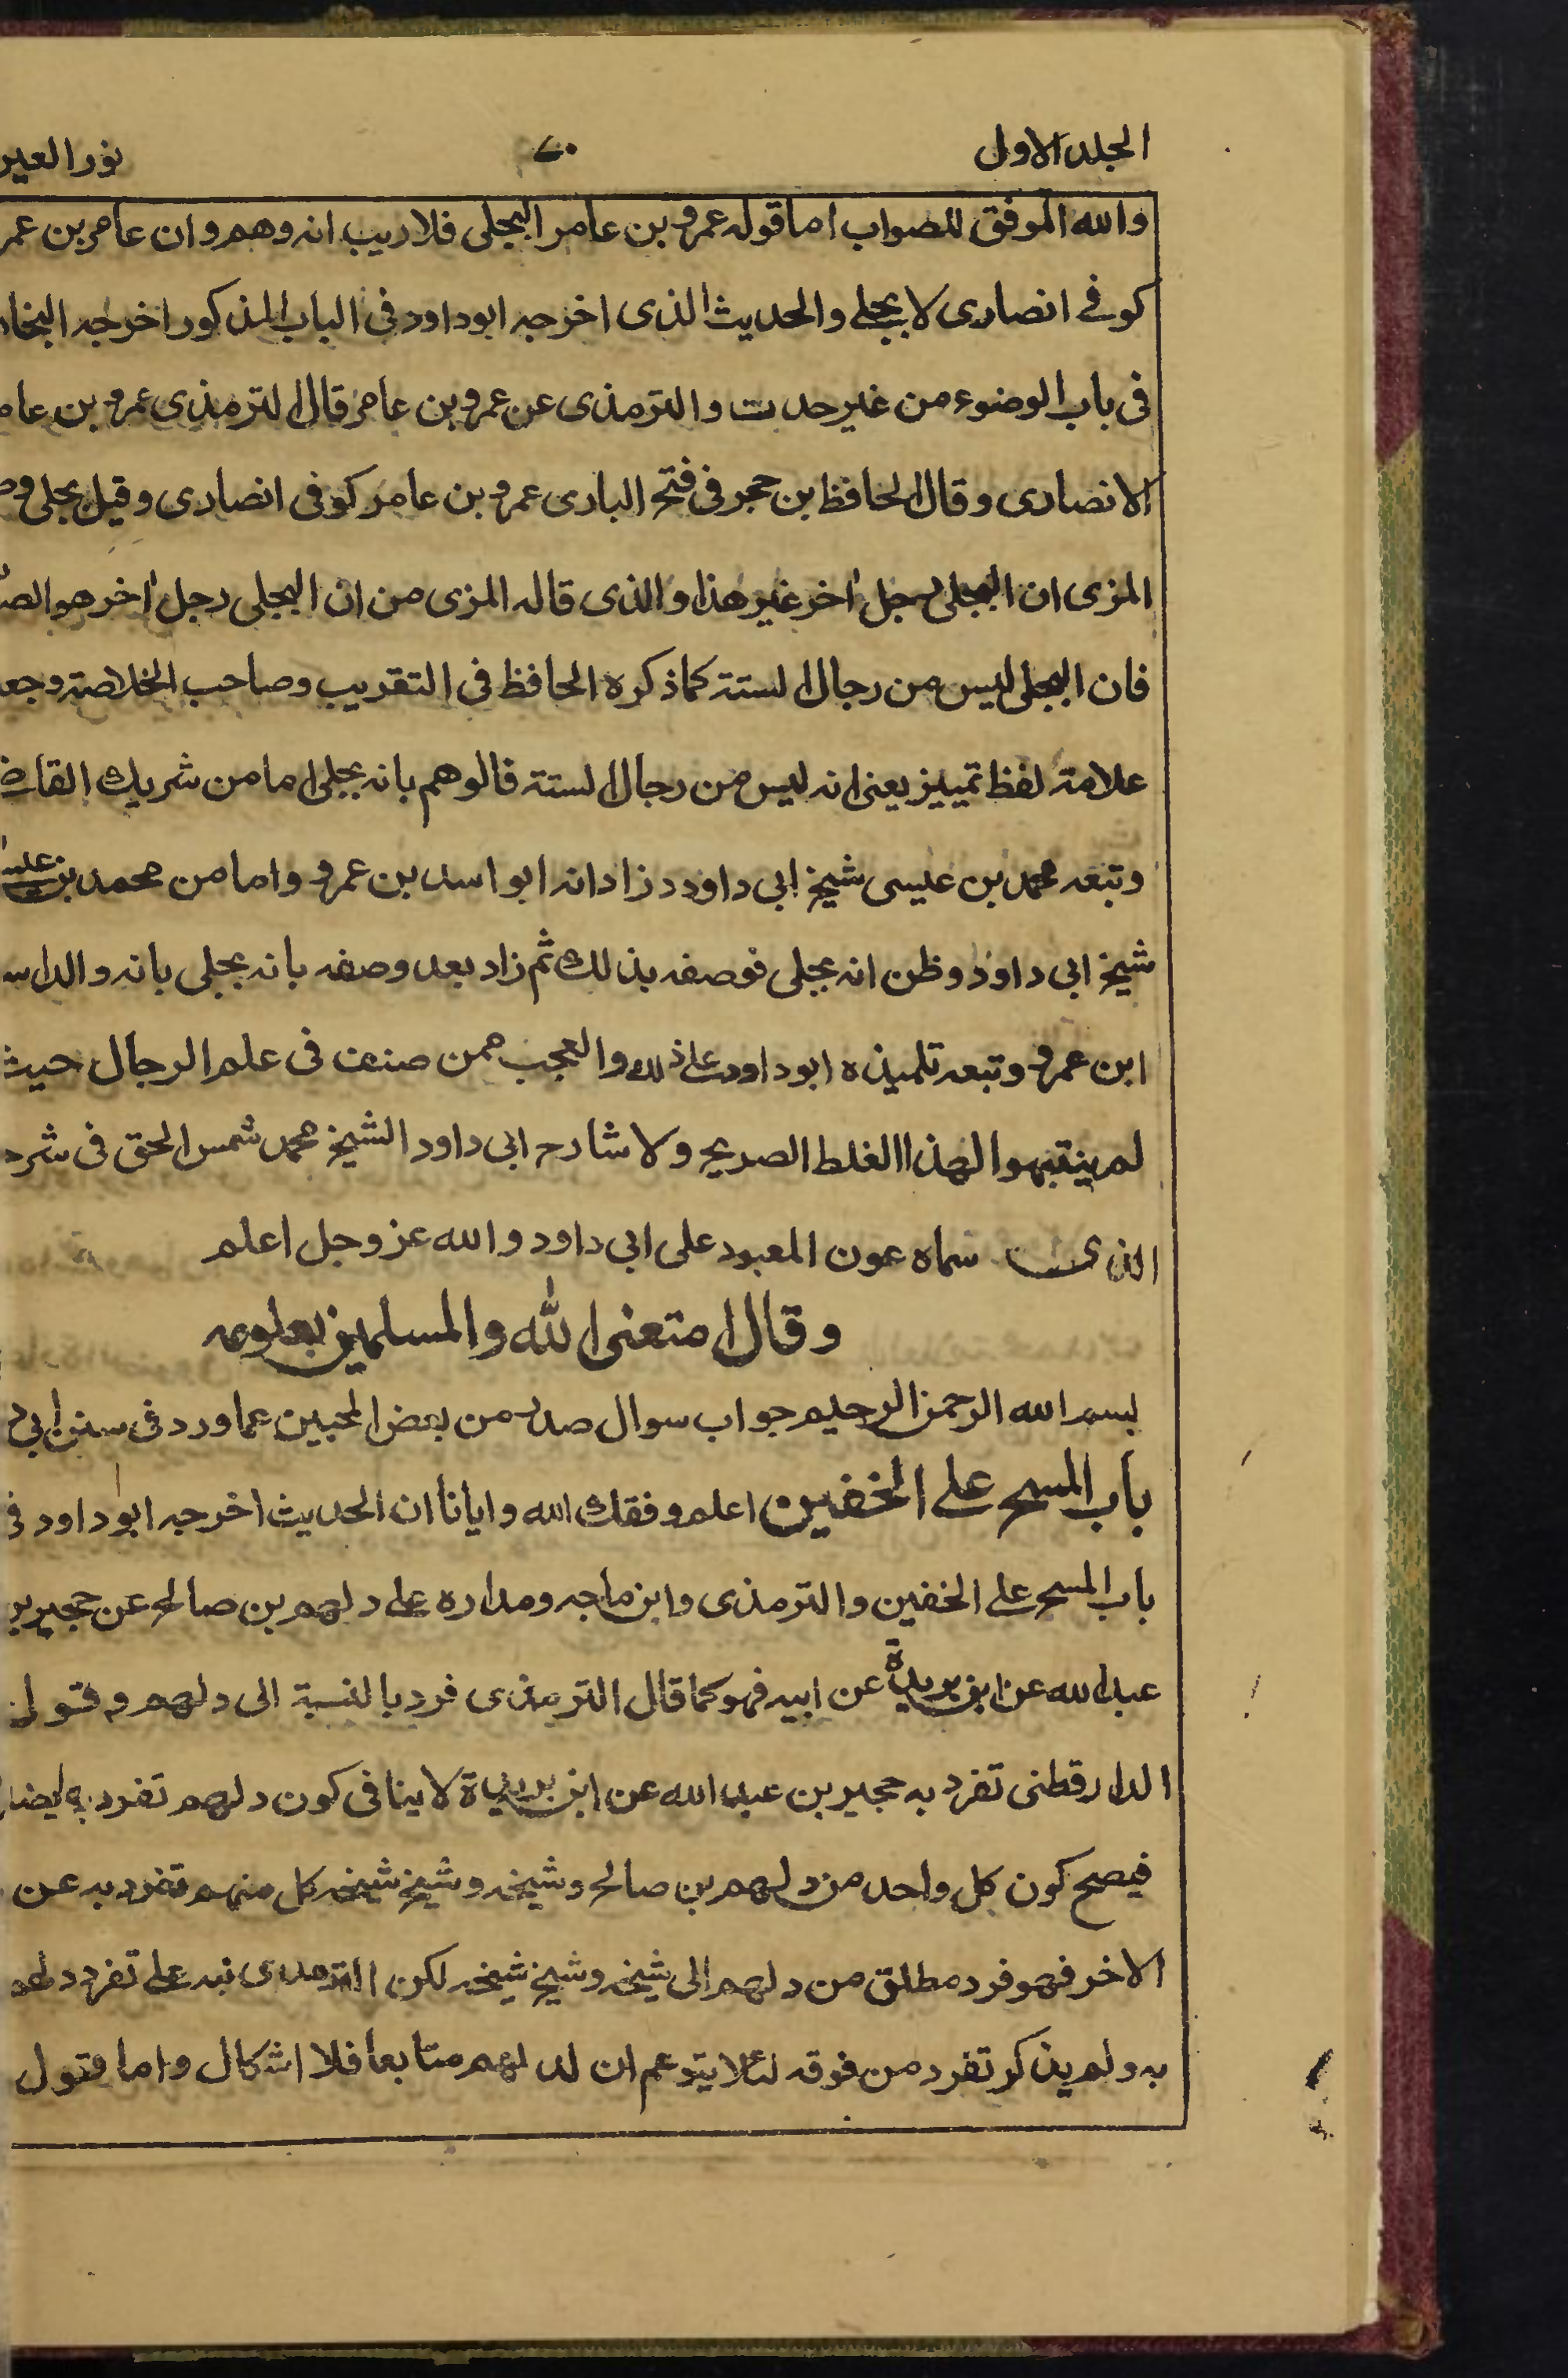 الجلد الاول ٧٠ نور العين
والله الموفق للصواب اما قوله عمرو بن عامر البجلى فلا ريب انه وهم وان عامر بن عمر
كوفے انصارى لا بجلے والحديث الذى اخرجه ابو داود فى الباب المذكور اخرجه البخا
فى باب الوضوء من غير حدث والترمذى عن عمرو بن عامر قال الترمذى عمرو بن عا
الانصارى وقال الحافظ بن حجر فى فتح البارى عمرو بن عامر كوفى انصارى وقيل بجلى و
المزى ان البجلى رجل اخر غير هذا والذى قاله المزى من ان البجلى رجل اخر هو الص
فان البجلى ليس من رجال الستة كما ذكره الحافظ فى التقريب وصاحب الخلاصة وجعـ
علامة لفظ تمييز يعنى انه ليس من رجال الستة فالوهم بانه بجلى اما من شريك القاضے
وتبعه محمد بن عيسى شيخ ابى داود د زاد انه ابو اسد بن عمرو واما من محمد بن
شيخ ابى داود وظن انه بجلى فوصفه بذلك ثم زاد بعد وصفه بانه بجلى بانه والد اس
ابن عمرو وتبعه تلميذه ابو داود على ذلك والعجب ممن صنف فى علم الرجال حيث
لم ينتبهوا لهذا الغلط الصريح ولا شارح ابى داود الشيخ محمد شمس الحق فى شرح
الذى سماه عون المعبود على ابى داود والله عز وجل اعلم
وقال امتعنى الله والمسلمين بعلومه
بسم الله الرحمن الرحيم جواب سوال صدر من بعض المحبين عما ورد فى سنن ابى د
باب المسح على الخفين اعلم وفقك الله وايانا ان الحديث اخرجه ابو داود فى
باب المسح على الخفين والترمذى وابن ماجه ومداره على دلهم بن صالح عن حجير بن
عبد الله عن ابن بريدة عن ابيه فهو كما قال الترمذى فرد بالنسبة الى دلهم وقول
الدارقطنى تفرد به حجير بن عبد الله عن ابن بريدة لا ينافى كون دلهم تفرد به ايضا
فيصح كون كل واحد من دلهم بن صالح وشيخه وشيخ شيخه كل منهم تفرد به عن
الاخر فهو فرد مطلق من دلهم الى شيخه وشيخ شيخه لكن الترمذى نبه على تفرد دلهم
به ولم يذكر تفرد من فوقه لئلا يتوهم ان لدلهم متابعا فلا اشكال واما قول